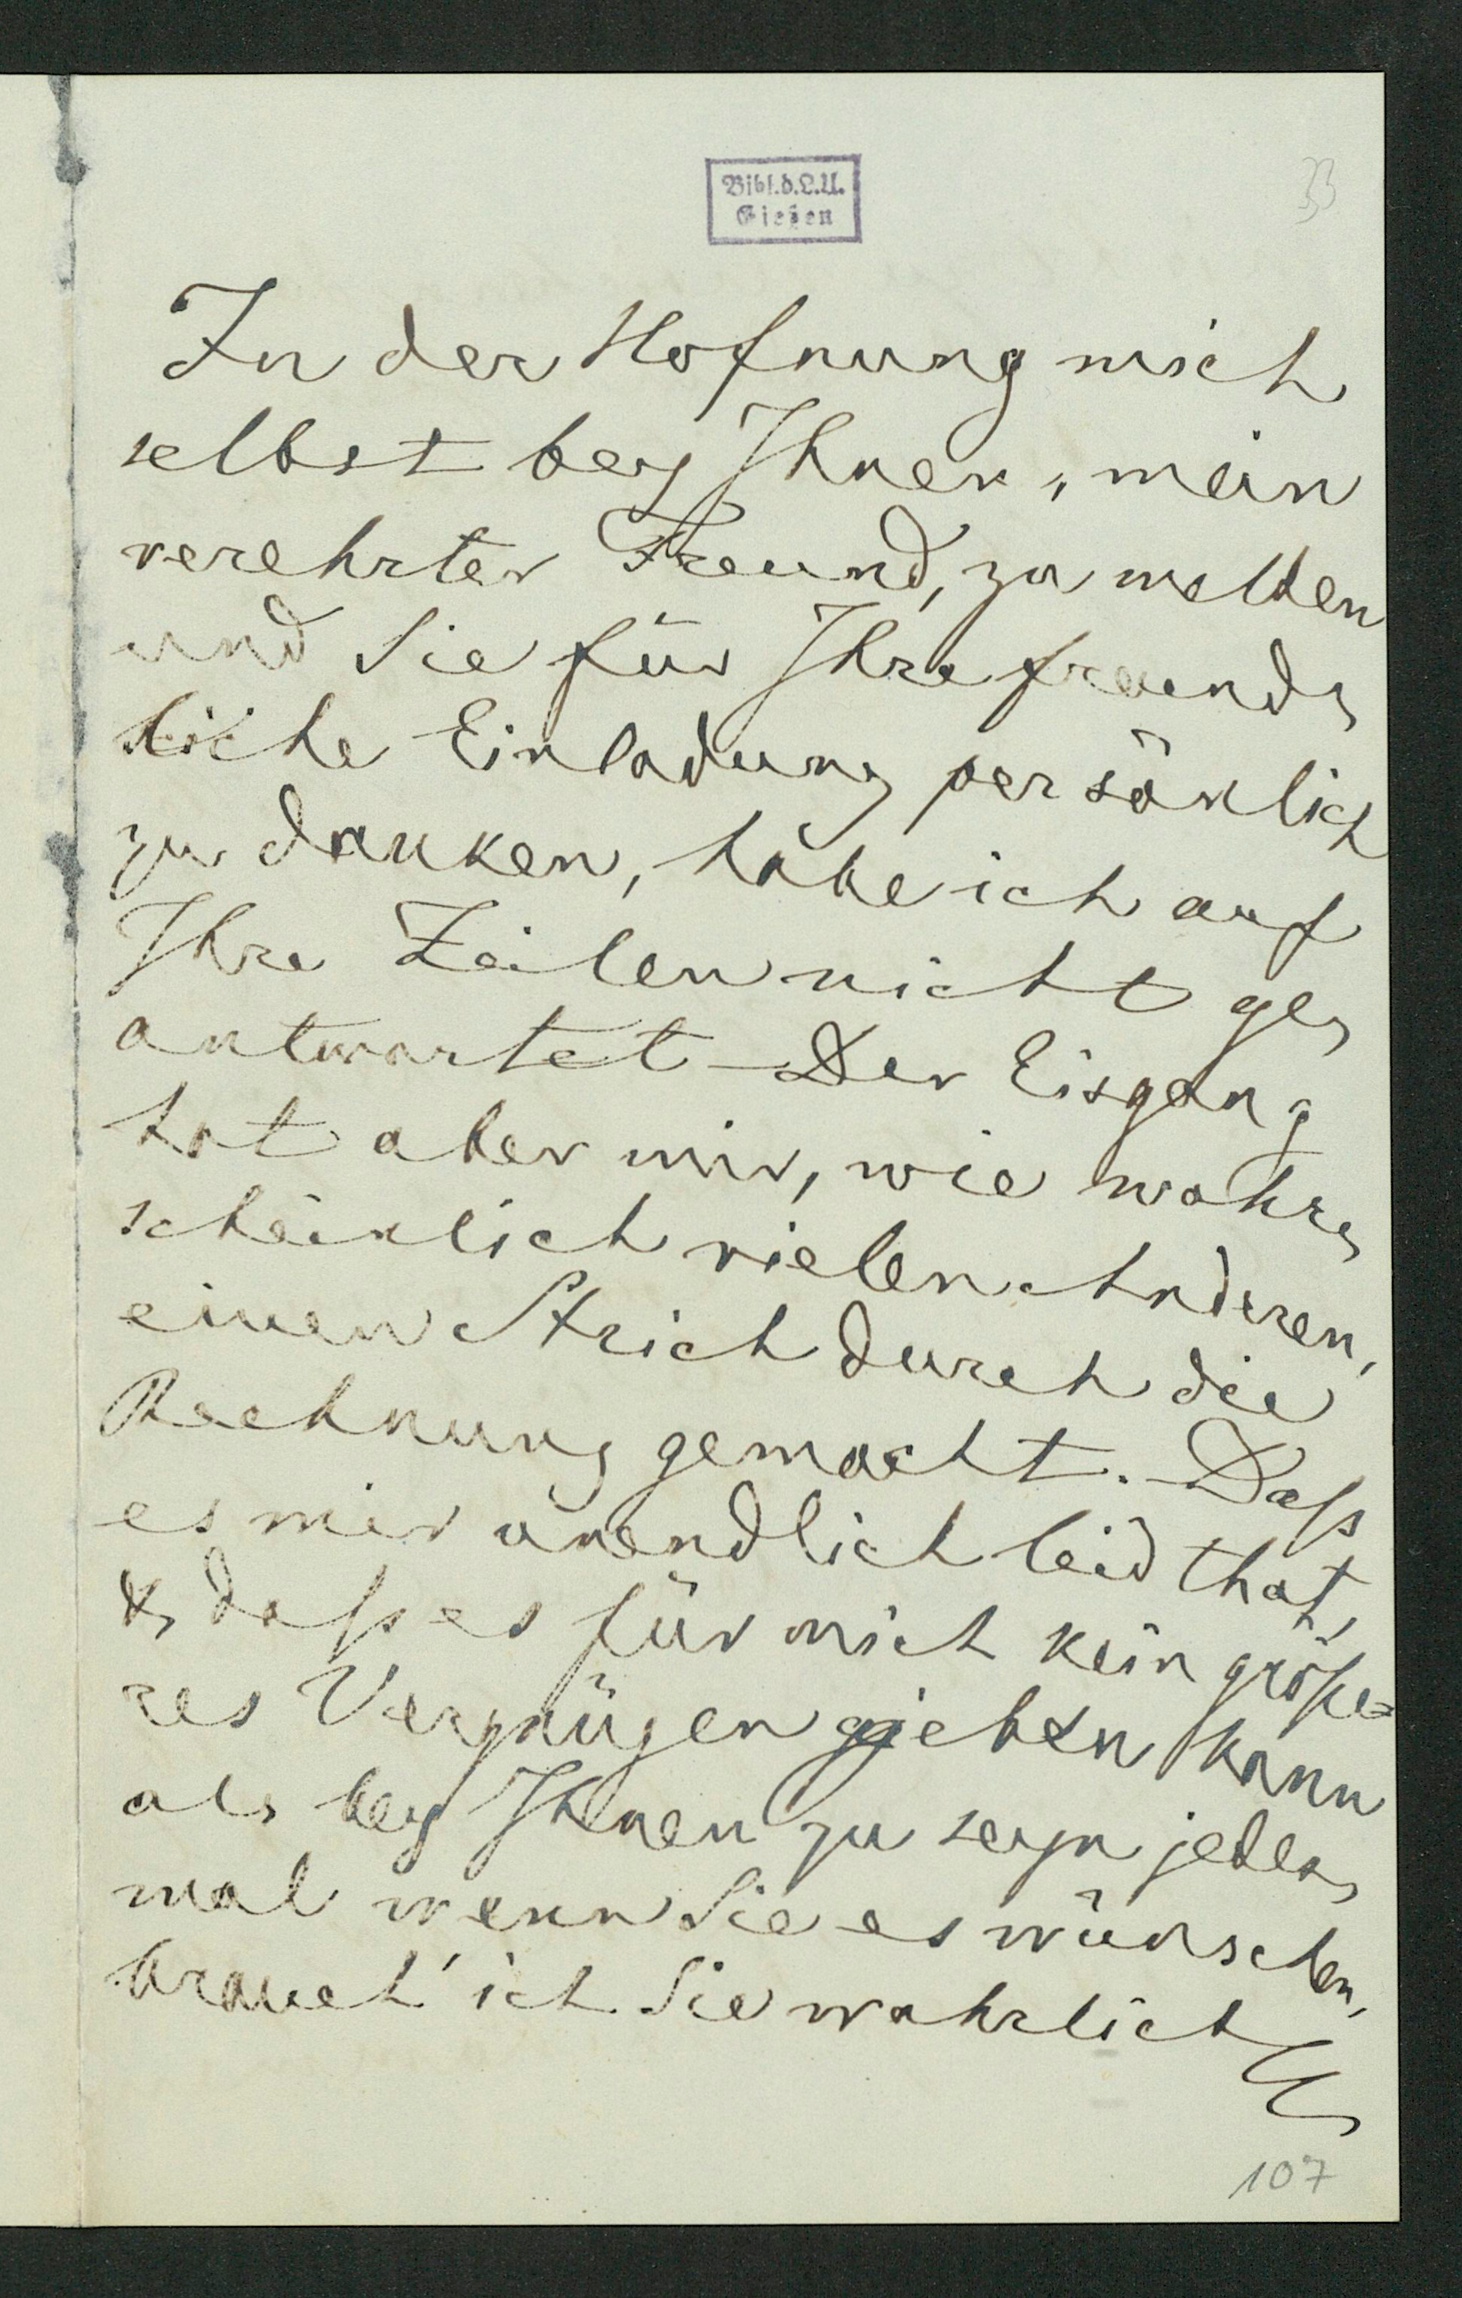 Bibl.d.L.U.
Gießen
33
In der Hofnung mich
selbst bey Ihnen, mein
verehrter Freund, zu melden
und Sie für Ihre freund-
liche Einladung persönlich
zu danken, habe ich auf
Ihre Zeilen nicht ge-
antwortet – Der Eisgang
hat aber mir, wie wahr-
scheinlich vielen Anderen,
einen Strich durch die
Rechnung gemacht. – Daß
es mir unendlich leid that,
& daß es für mich kein größe-
res Vergnügen gieben kann
als bey Ihnen zu seyn jedes-
mal wenn Sie es wünschen,
brauch' ich Sie wahrlich
107